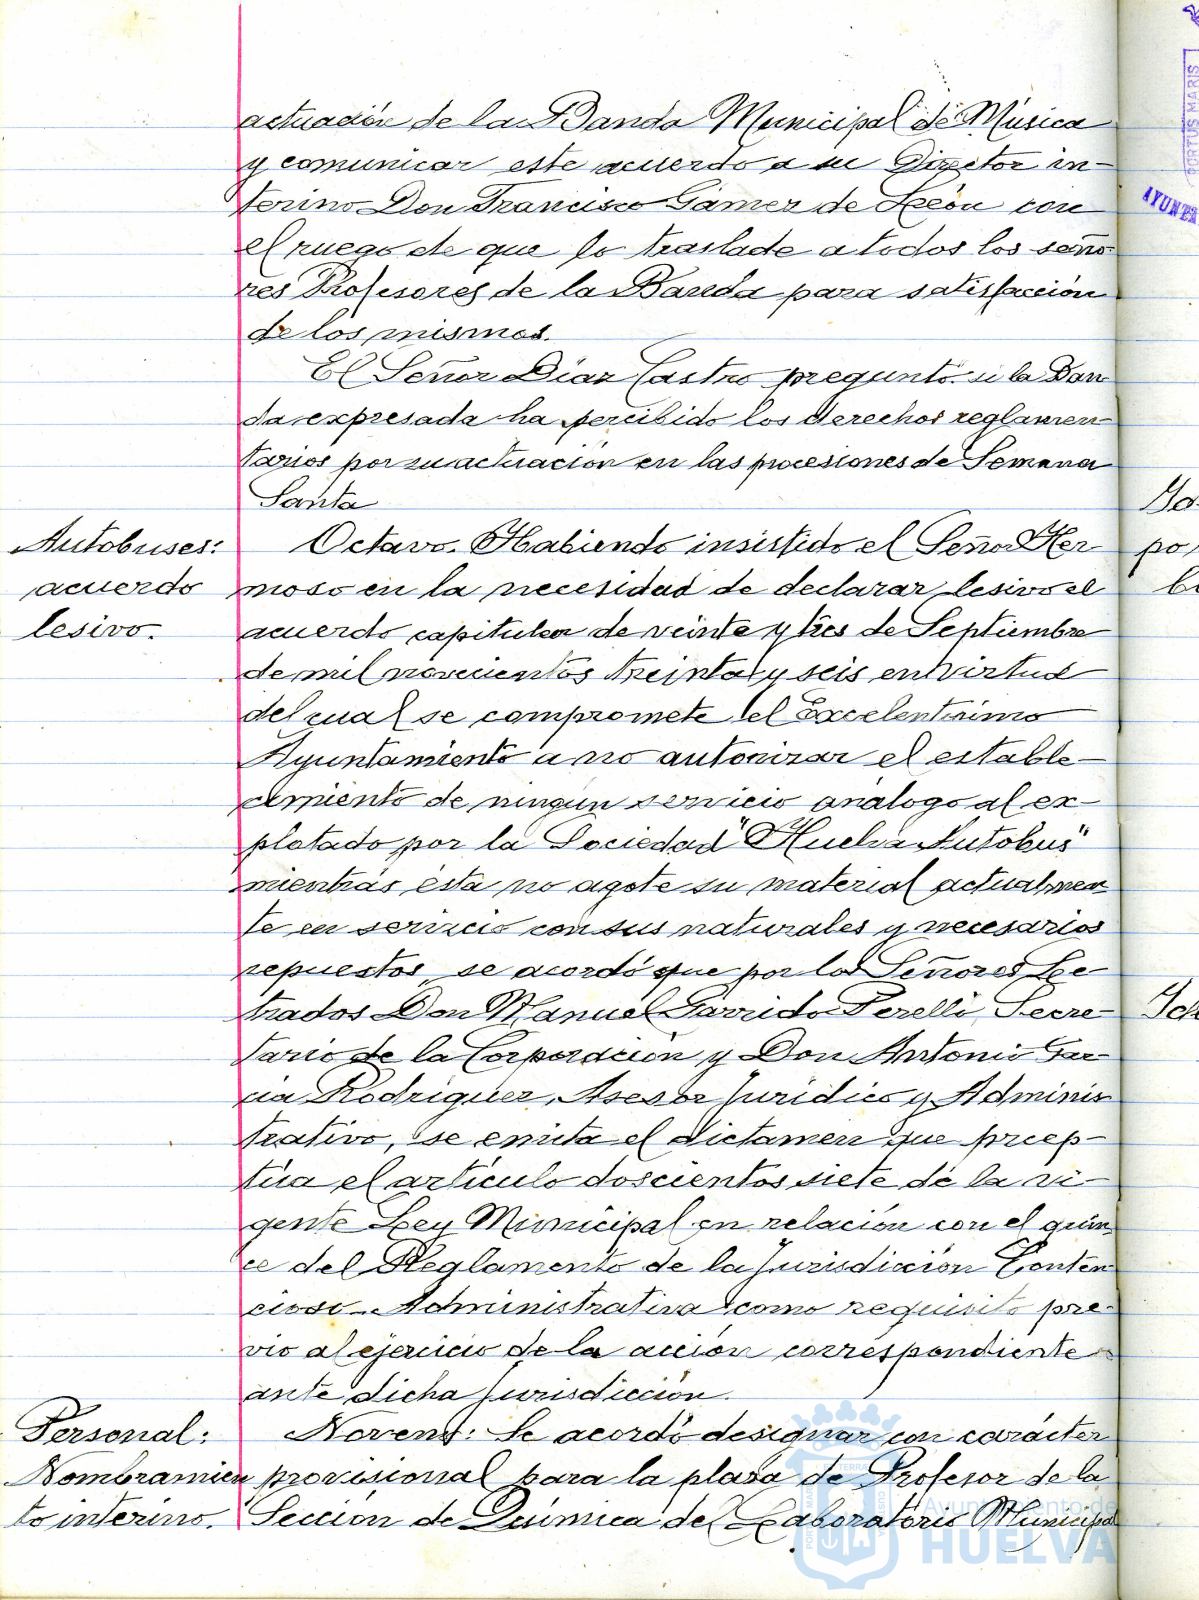 actuación de la Banda Municipal de Música
y comunicar este acuerdo a su Director in-
terino Don Francisco Gámez de León con
el ruego de que lo traslade a todos los seño-
res Profesores de la Banda para satisfacción
de los mismos.
El Señor Díaz Castro preguntó si la Ban-
da expresada ha percibido los derechos reglamen-
tarios por su actuación en las procesiones de Semana
Santa
Autobuses:
acuerdo
lesivo.
Octavo. Habiendo insistido el Señor Her-
moso en la necesidad de declarar lesivo el
acuerdo capitular de veinte y tres de Septiembre
de mil novecientos treinta y seis en virtud
del cual se compromete el Excelentísimo
Ayuntamiento a no autorizar el estable-
cimiento de ningún servicio análogo al ex-
plotado por la Sociedad "Huelva Autobus"
mientras ésta no agote su material actualmen-
te en servicio con sus naturales y necesarios
repuestos, se acordó que por los Señores Le-
trados Don Manuel Garrido Perelló, Secre-
tario de la Corporación y Don Antonio Gar-
cia Rodríguez, Asesor Jurídico y Adminis-
trativo, se emita el dictamen que precep-
túa el artículo doscientos siete de la vi-
gente Ley Municipal en relación con el quin-
ce del Reglamento de la Jurisdicción Conten-
cioso-Administrativa como requisito pre-
vio al ejercicio de la acción correspondiente
ante dicha Jurisdicción.
Personal:
Nombramien
to interino.
Noveno: Se acordó designar con carácter
provisional para la plaza de Profesor de la
Sección de Química del Laboratorio Municipal
Ayuntamiento de
HUELVA
PORTUS MARIS
AYUNTA